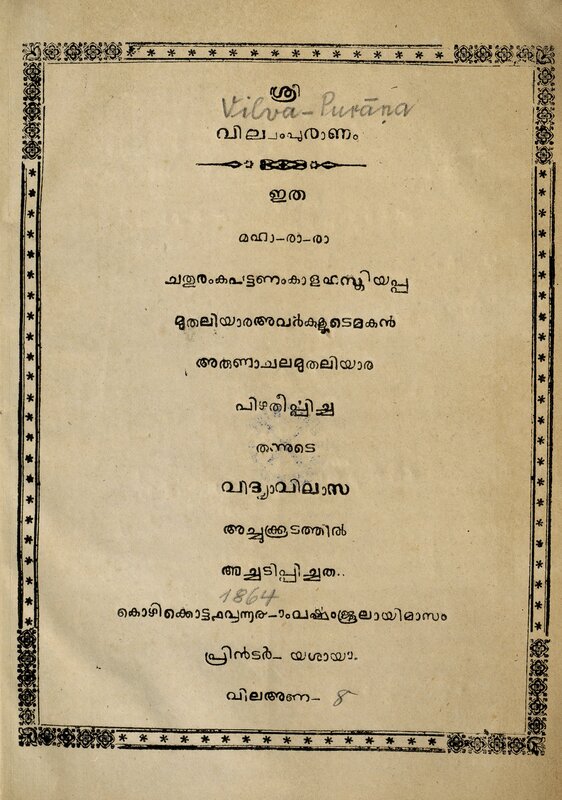 ശ്രീ
Vilva-Purāṇa
വില്വംപുരാണം
ഇത
മഹാ-രാ-രാ
ചതുരംകപട്ടണംകാളഹസ്തിയപ്പ
മുതലിയാരഅവർകളുടെമകൻ
അരുണാചലമുതലിയാര
പിഴതീൎപ്പിച്ച
തന്നുടെ
വിദ്യാവിലാസ
അച്ചുക്കൂടത്തിൽ
അച്ചടിപ്പിച്ചത..
1864
കൊഴിക്കൊട്ട ജൂലായിമാസം
പ്രിൻടർ- യശായാ.
വിലഅണ- 8